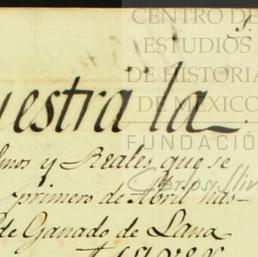 CENTRO DE
ESTUDIOS
DE HISTORIA
DE MEXICO
FUNDACIÓ
uestra la
y Reales que se
primero de Abril has-
de Ganado de Lana